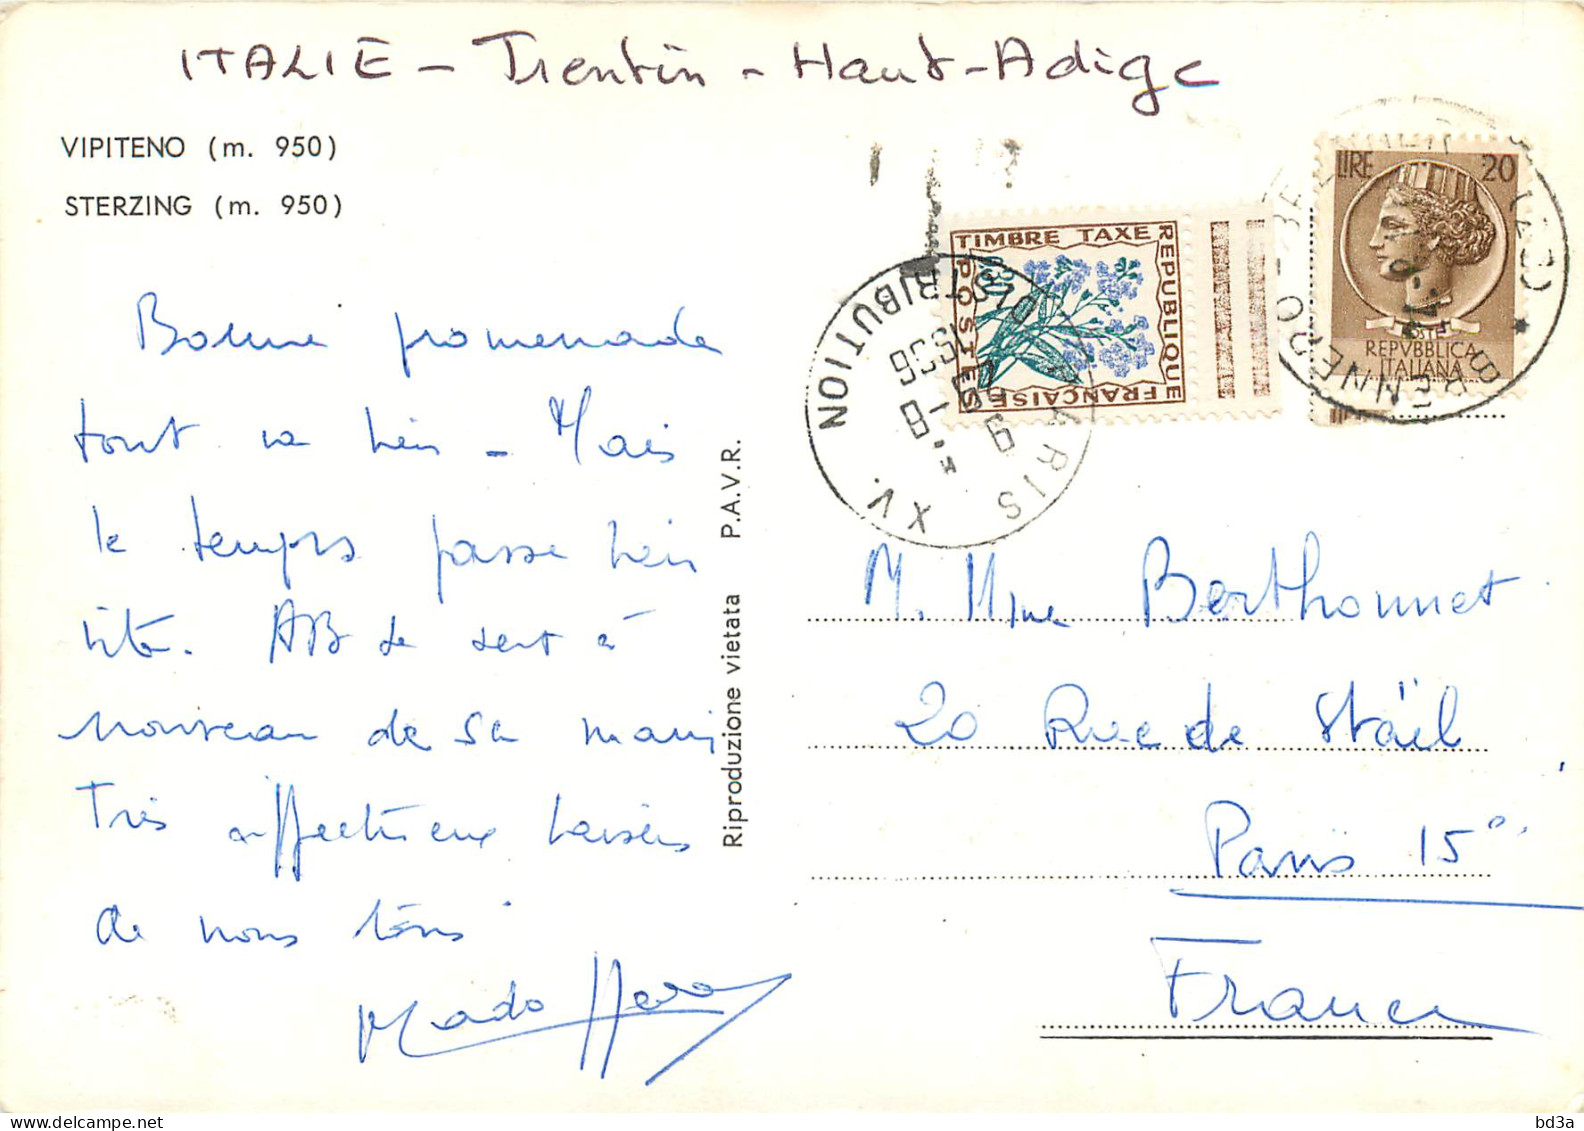 ITALIE - Trentin - Haut-Adige
VIPITENO (m. 950)
STERZING (m. 950)
Bonne promenade
tout va bien - Mais
le temps passe bien
vite. AB se sent à
nouveau de sa mari
Très affectueux baisers
de nous tous
Mado
Riproduzione vietata P.A.V.R.
TIMBRE TAXE
REPUBLIQUE
FRANÇAISE
POSTES
0,30
PARIS XV. DISTRIBUTION
LIRE 20
POSTE
REPVBBLICA
ITALIANA
BRENNERO
M. Mme Berthonnet
20 Rue de Staël
Paris 15e
France
bd3a